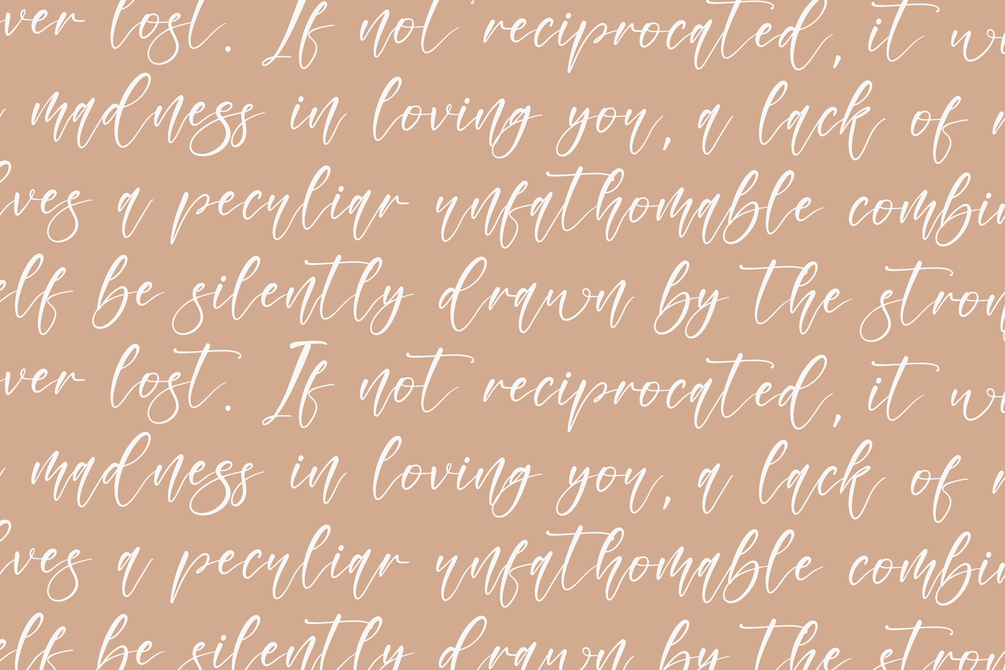 ver lost. If not reciprocated, it w
madness in loving you, a lack of
lves a peculiar unfathomable combin
elf be silently drawn by the stron
ver lost. If not reciprocated, it w
madness in loving you, a lack of
lves a peculiar unfathomable combin
elf be silently drawn by the stron